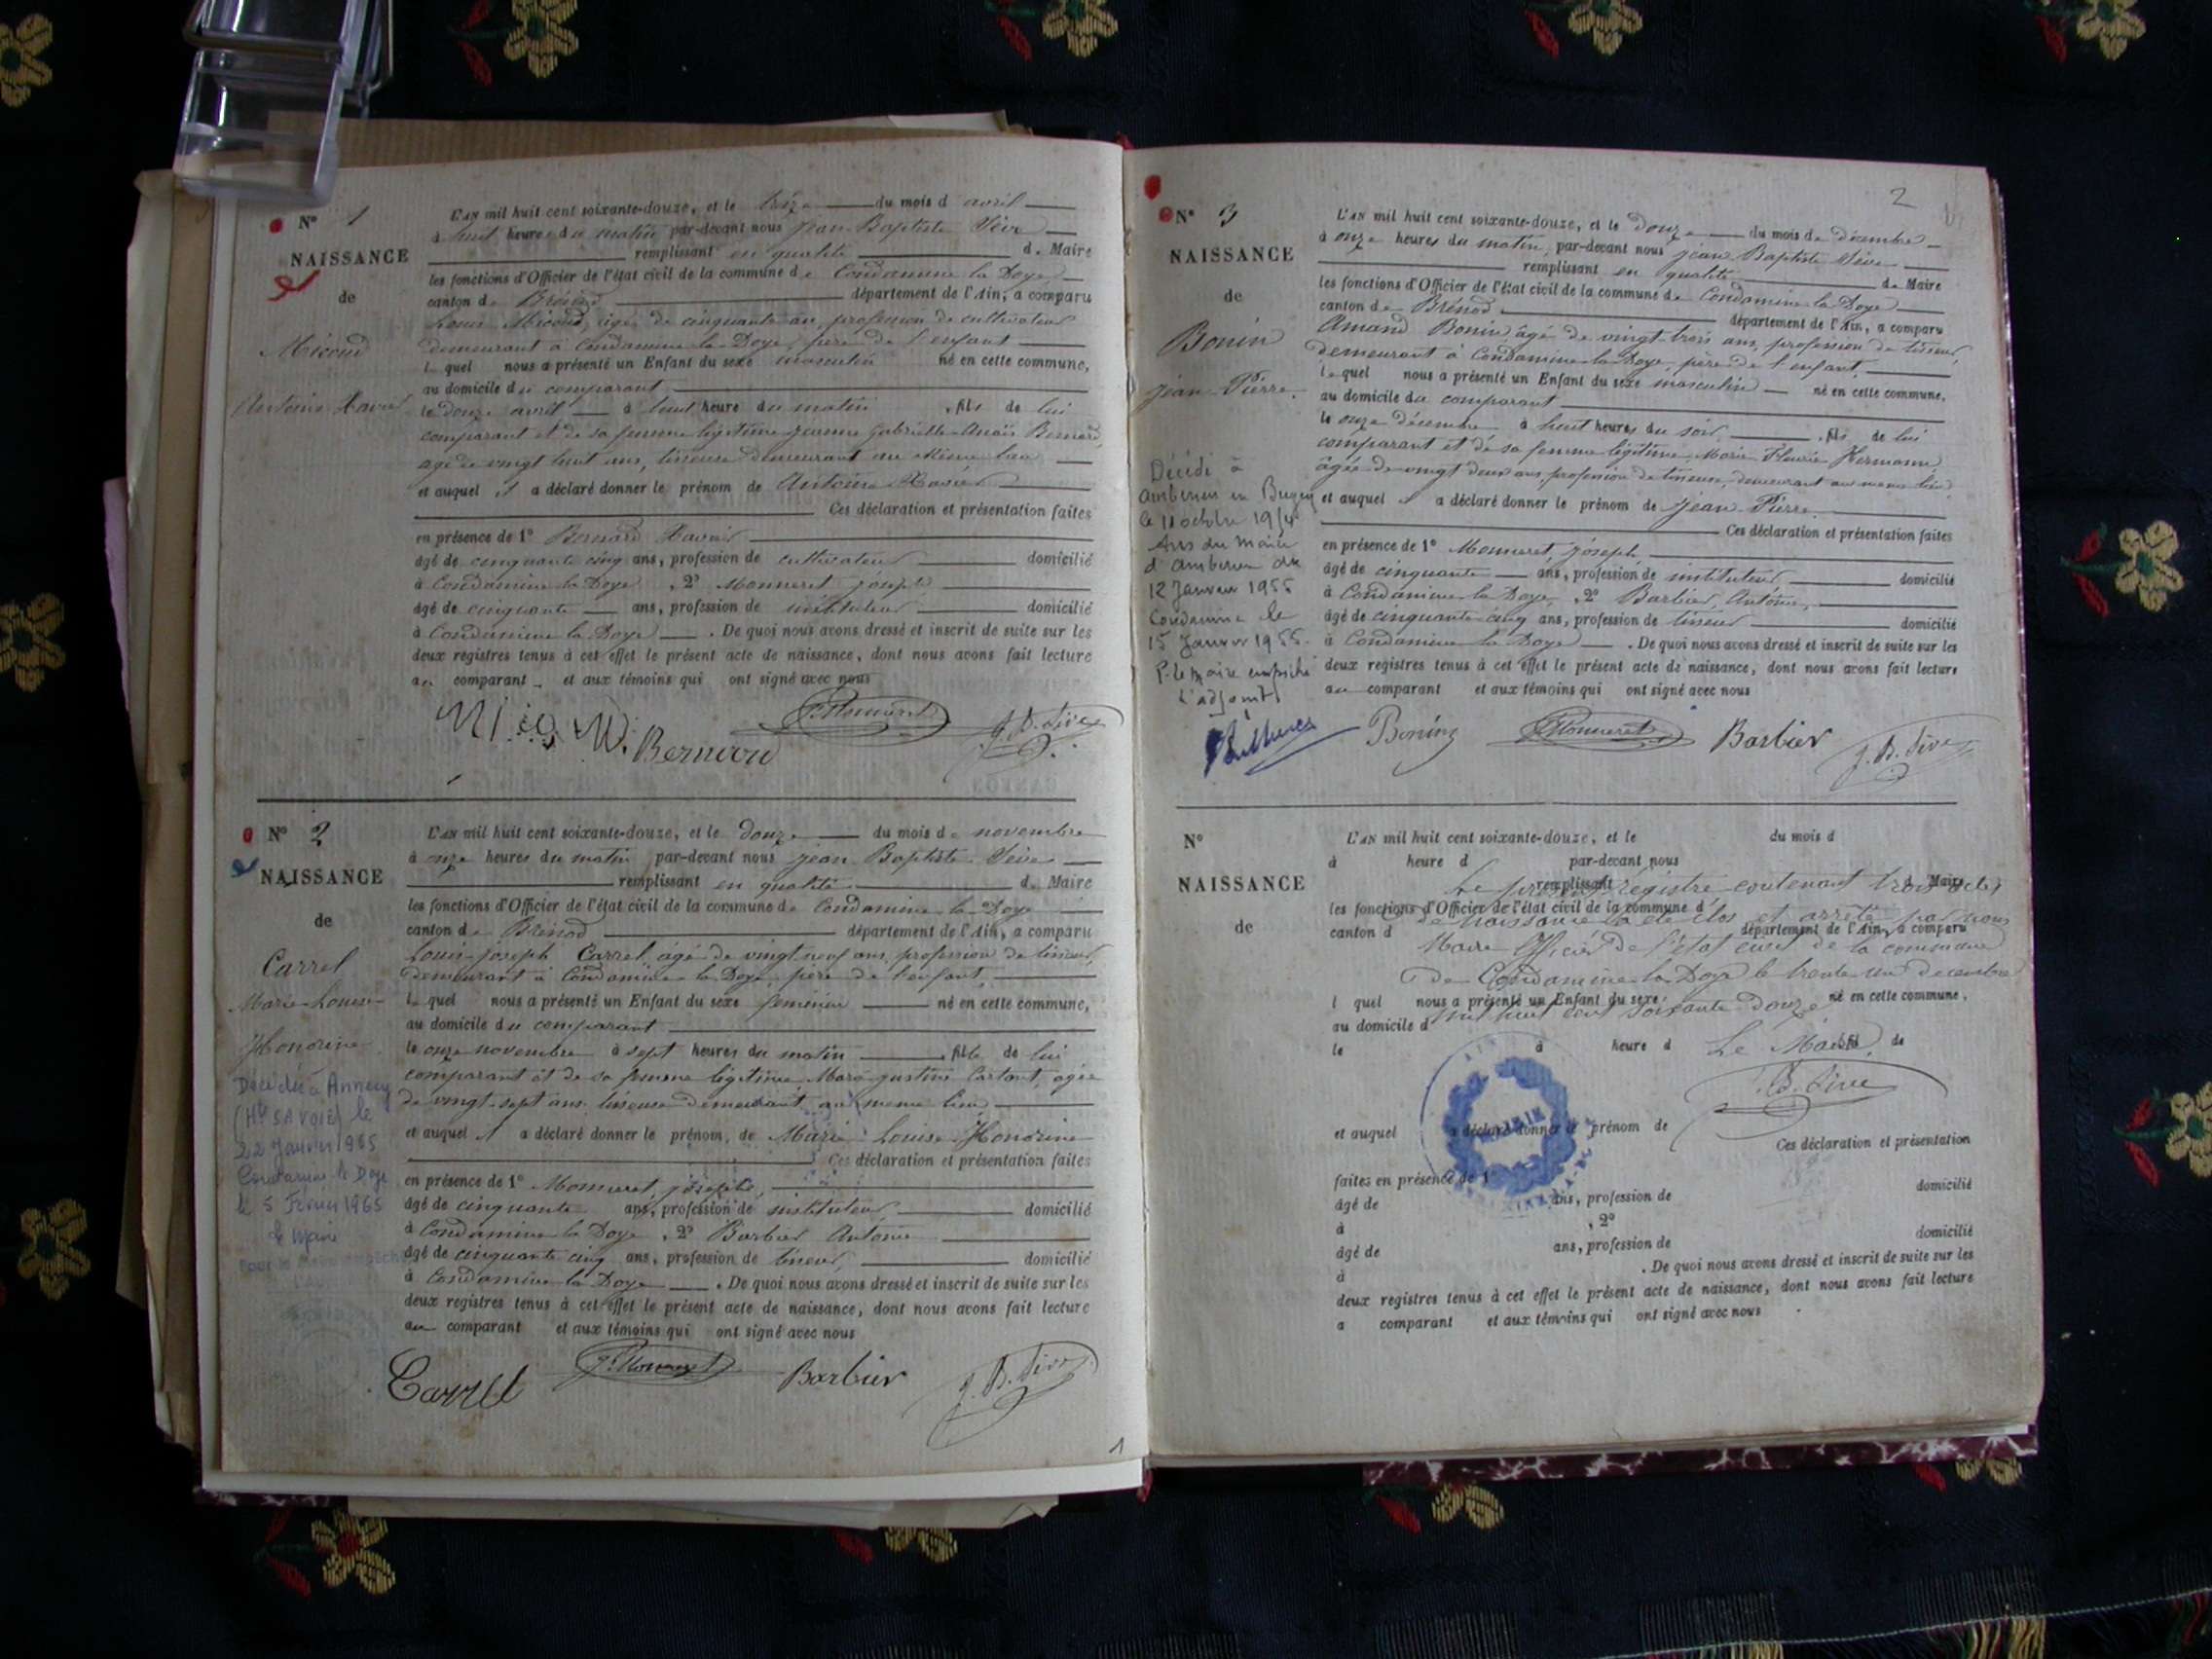 N° 1
NAISSANCE
de
Micoud
Antoine Xavier
L'AN mil huit cent soixante-douze, et le treize du mois d avril
à huit heures du matin par-devant nous Jean Baptiste Sève
remplissant en qualité de Maire
les fonctions d'Officier de l'état civil de la commune de Condamine la Doye
canton de Brénod département de l'Ain, a comparu
Louis Micoud, âgé de cinquante ans, profession de cultivateur
demeurant à Condamine la Doye, père de l'enfant
lequel nous a présenté un Enfant du sexe masculin né en cette commune,
au domicile du comparant
le douze avril à huit heure du matin, fils de lui
comparant et de sa femme légitime Jeanne Gabrielle Anaïs Bernard,
âgée de vingt huit ans, tisseuse demeurant au même lieu
et auquel il a déclaré donner le prénom de Antoine Xavier
Ces déclaration et présentation faites
en présence de 1° Bernard Xavier
âgé de cinquante cinq ans, profession de cultivateur domicilié
à Condamine la Doye, 2° Monneret Joseph
âgé de cinquante ans, profession de instituteur domicilié
à Condamine la Doye. De quoi nous avons dressé et inscrit de suite sur les
deux registres tenus à cet effet le présent acte de naissance, dont nous avons fait lecture
au comparant et aux témoins qui ont signé avec nous
Bernard
J. Monneret
J. B. Sève
N° 2
NAISSANCE
de
Carrel
Marie-Louise-
Honorine
Décédée à Annecy
(Hte SAVOIE) le
22 Janvier 1965
Condamine la Doye
le 5 Février 1965
le Maire
L'AN mil huit cent soixante-douze, et le douze du mois de novembre
à onze heures du matin par-devant nous Jean Baptiste Sève
remplissant en qualité de Maire
les fonctions d'Officier de l'état civil de la commune de Condamine la Doye
canton de Brénod département de l'Ain, a comparu
Louis-Joseph Carrel, âgé de vingt neuf ans, profession de tisseur,
demeurant à Condamine la Doye, père de l'enfant,
lequel nous a présenté un Enfant du sexe féminin né en cette commune,
au domicile du comparant
le onze novembre à sept heures du matin, fille de lui
comparant et de sa femme légitime, Marie Justine, âgée
de vingt-sept ans, tisseuse demeurant au même lieu
et auquel il a déclaré donner le prénom, de Marie Louise Honorine
Ces déclaration et présentation faites
en présence de 1° Monneret, Joseph,
âgé de cinquante ans, profession de instituteur, domicilié
à Condamine la Doye, 2° Barbier Antoine
âgé de cinquante cinq ans, profession de tisseur, domicilié
à Condamine la Doye. De quoi nous avons dressé et inscrit de suite sur les
deux registres tenus à cet effet le présent acte de naissance, dont nous avons fait lecture
au comparant et aux témoins qui ont signé avec nous
Carrel
J. Monneret
Barbier
J. B. Sève
1
2
N° 3
NAISSANCE
de
Bonin
Jean-Pierre.
Décédé à
Ambérieu en Bugey
le 11 octobre 1954
Avis du Maire
d'Ambérieu du
12 Janvier 1955
Condamine le
15 Janvier 1955.
P. le Maire empêché
L'adjoint
L'AN mil huit cent soixante-douze, et le douze du mois de décembre
à onze heures du matin, par-devant nous Jean Baptiste Sève
remplissant en qualité de Maire
les fonctions d'Officier de l'état civil de la commune de Condamine la Doye
canton de Brénod département de l'Ain, a comparu
Amand Bonin âgé de vingt-trois ans, profession de tisseur,
demeurant à Condamine la Doye, père de l'enfant,
lequel nous a présenté un Enfant du sexe masculin né en cette commune,
au domicile du comparant
le onze décembre à huit heures du soir, fils de lui
comparant et de sa femme légitime, Marie Fleurie Hermann
âgée de vingt deux ans, profession de tisseuse, demeurant au même lieu
et auquel il a déclaré donner le prénom de Jean Pierre.
Ces déclaration et présentation faites
en présence de 1° Monneret, Joseph
âgé de cinquante ans, profession de instituteur domicilié
à Condamine la Doye, 2° Barbier, Antoine,
âgé de cinquante-cinq ans, profession de tisseur domicilié
à Condamine la Doye. De quoi nous avons dressé et inscrit de suite sur les
deux registres tenus à cet effet le présent acte de naissance, dont nous avons fait lecture
au comparant et aux témoins qui ont signé avec nous
Bonin
J. Monneret
Barbier
J. B. Sève
N°
NAISSANCE
de
L'AN mil huit cent soixante-douze, et le du mois d
à heure d par-devant nous
remplissant d Maire
Le présent registre contenant trois actes
les fonctions d'Officier de l'état civil de la commune d
de naissance a été clos et arrêté par nous
canton d département de l'Ain, a comparu
Maire Officier de l'état civil de la commune
de Condamine la Doye le trente un décembre
l quel nous a présenté un Enfant du sexe né en cette commune,
mil huit cent soixante douze
au domicile d
le à heure d fil de
Le Maire
J. B. Sève
et auquel a déclaré donner le prénom de
Ces déclaration et présentation
faites en présence de 1°
âgé de ans, profession de domicilié
à , 2°
âgé de ans, profession de domicilié
à . De quoi nous avons dressé et inscrit de suite sur les
deux registres tenus à cet effet le présent acte de naissance, dont nous avons fait lecture
a comparant et aux témoins qui ont signé avec nous